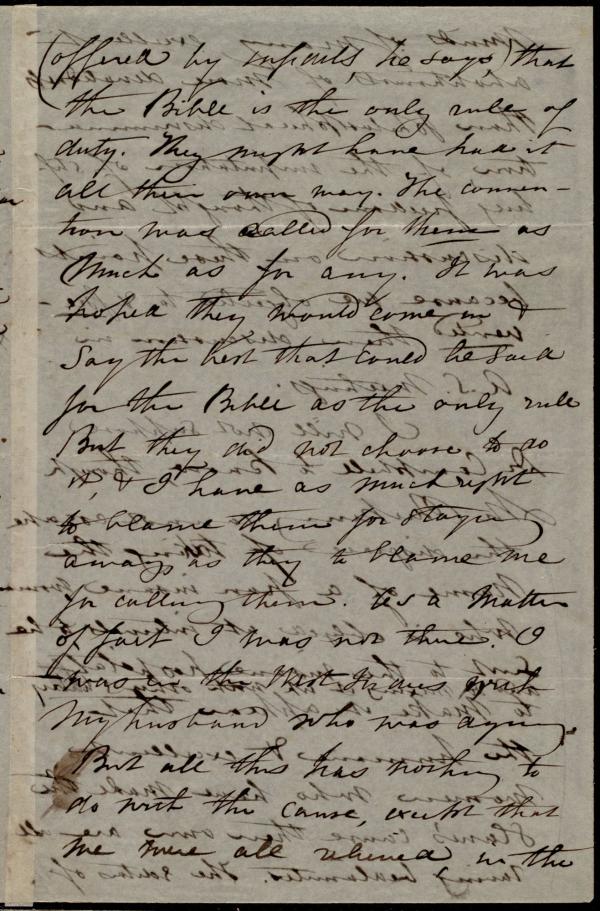 (offered by infidels, he says) that
the Bible is the only rule of
duty. They might have had it
all their own way. The conven-
tion was called for them as
much as for any. It was
hoped they would come in &
say the best that could be said
for the Bible as the only rule
But they did not choose to do
it, & I have as much right
to blame them for staying
away as they to blame me
for calling them. As a matter
of fact I was not there. I
was in the West Indies with
my husband who was dying.
But all this has nothing to
do with the cause, except that
we were all relieved in the